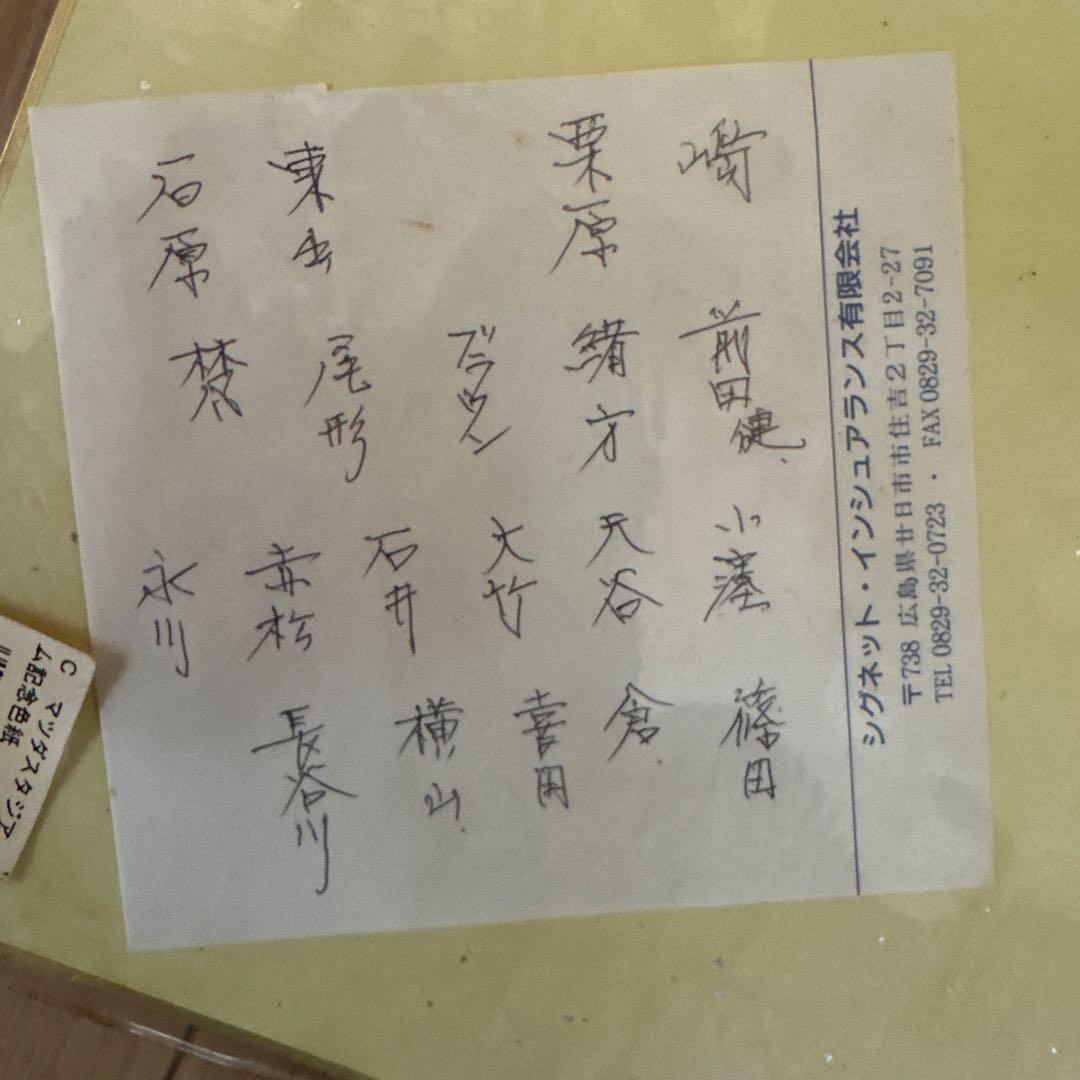 嶋
前田健
小窪
篠田
栗原
緒方
天谷
倉
ブラウン
大竹
喜田
東出
尾形
石井
横山
石原
梵
赤松
長谷川
永川
シグネット・インシュアランス有限会社
〒738 広島県廿日市市住吉2丁目2-27
TEL 0829-32-0723 ・ FAX 0829-32-7091
C マツダスタジア
ム記念色紙